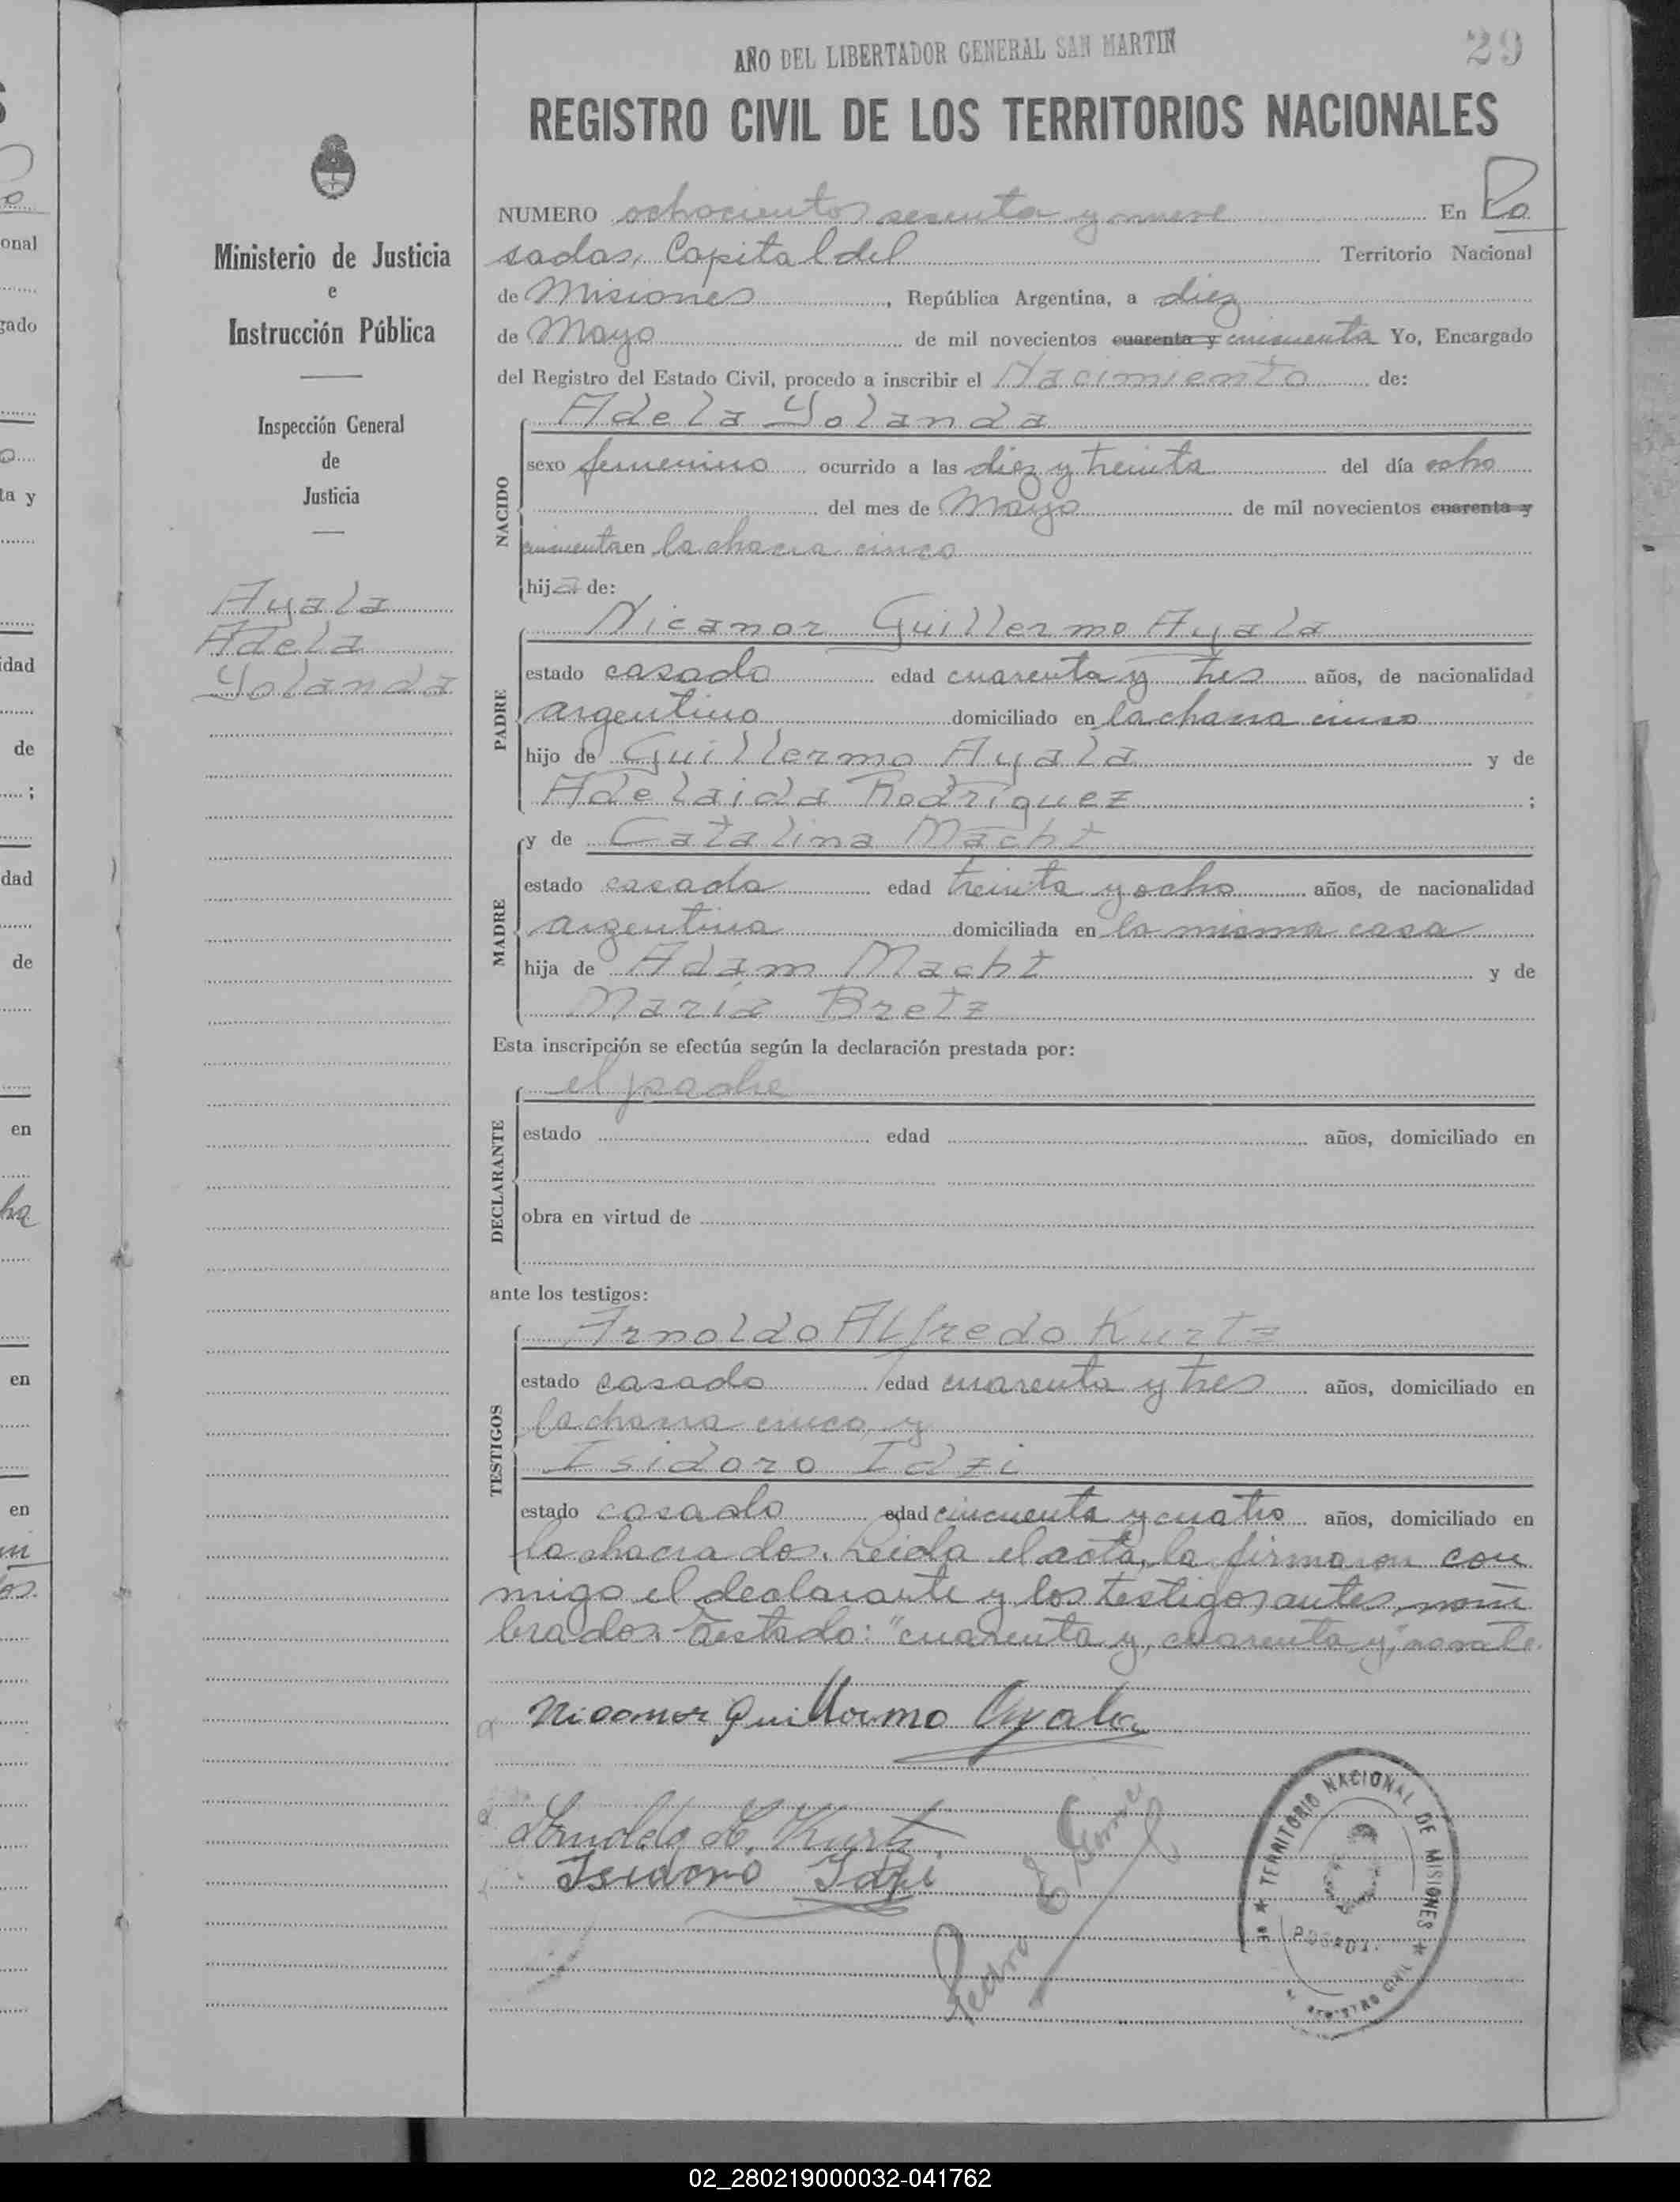 AÑO DEL LIBERTADOR GENERAL SAN MARTIN
29
REGISTRO CIVIL DE LOS TERRITORIOS NACIONALES
Ministerio de Justicia
e
Instrucción Pública
Inspección General
de
Justicia
Ayala
Adela
Yolanda
NUMERO ochocientos sesenta y nueve En Po
sadas, Capital del Territorio Nacional
de Misiones, República Argentina, a diez
de Mayo de mil novecientos cuarenta y cincuenta Yo, Encargado
del Registro del Estado Civil, procedo a inscribir el Nacimiento de:
NACIDO
Adela Yolanda
sexo femenino ocurrido a las diez y treinta del día ocho
del mes de Mayo de mil novecientos cuarenta y
cincuenta en la chacra cinco
hija de:
PADRE
Nicanor Guillermo Ayala
estado casado edad cuarenta y tres años, de nacionalidad
argentino domiciliado en la chacra cinco
hijo de Guillermo Ayala y de
Adelaida Rodríguez ;
MADRE
y de Catalina Macht
estado casada edad treinta y ocho años, de nacionalidad
argentina domiciliada en la misma casa
hija de Adam Macht y de
María Bretz
Esta inscripción se efectúa según la declaración prestada por:
DECLARANTE
el padre
estado edad años, domiciliado en
obra en virtud de
ante los testigos:
TESTIGOS
Arnoldo Alfredo Kurtz
estado casado edad cuarenta y tres años, domiciliado en
la chacra cinco, y
Isidoro Idzi
estado casado edad cincuenta y cuatro años, domiciliado en
la chacra dos. Leida el acta, la firmaron con
migo el declarante y los testigos antes nom
brados. Testado: "cuarenta y, cuarenta y," no vale.
Nicanor Guillermo Ayala
Arnoldo A. Kurtz
Isidoro Idzi
TERRITORIO NACIONAL DE MISIONES
POSADAS
REGISTRO CIVIL
02_280219000032-041762